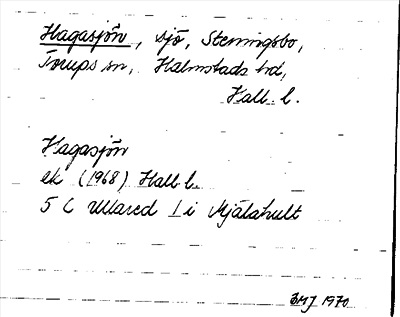 Hagasjön, sjö, Stenningsbo,
Torups sn, Halmstads hd,
Hall. l.
Hagasjön
ek (1968) Hall l.
5 C Ullared I i Mjälahult
BMJ 1970